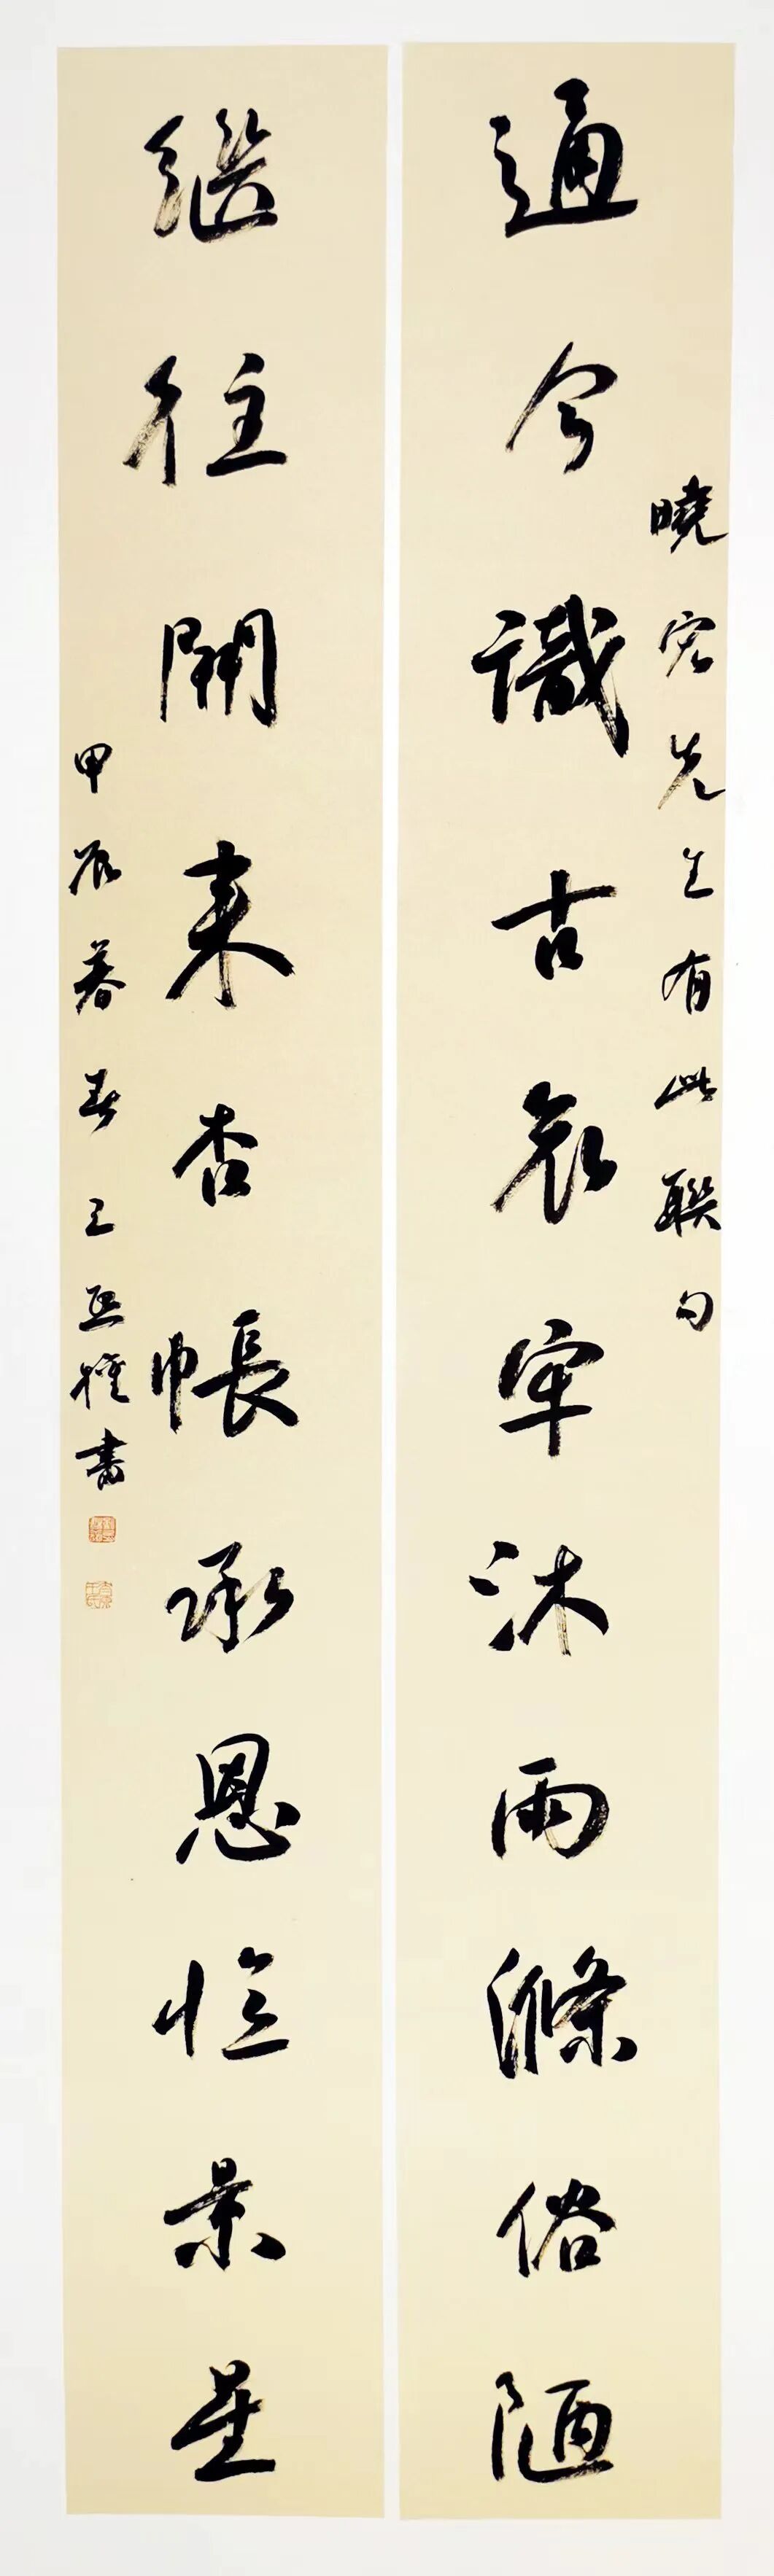 曉宏先生有此聯句
通今識古哀牢沐雨滌俗陋
繼往開來杏帳承恩憶景星
甲辰暮春王亞雄書